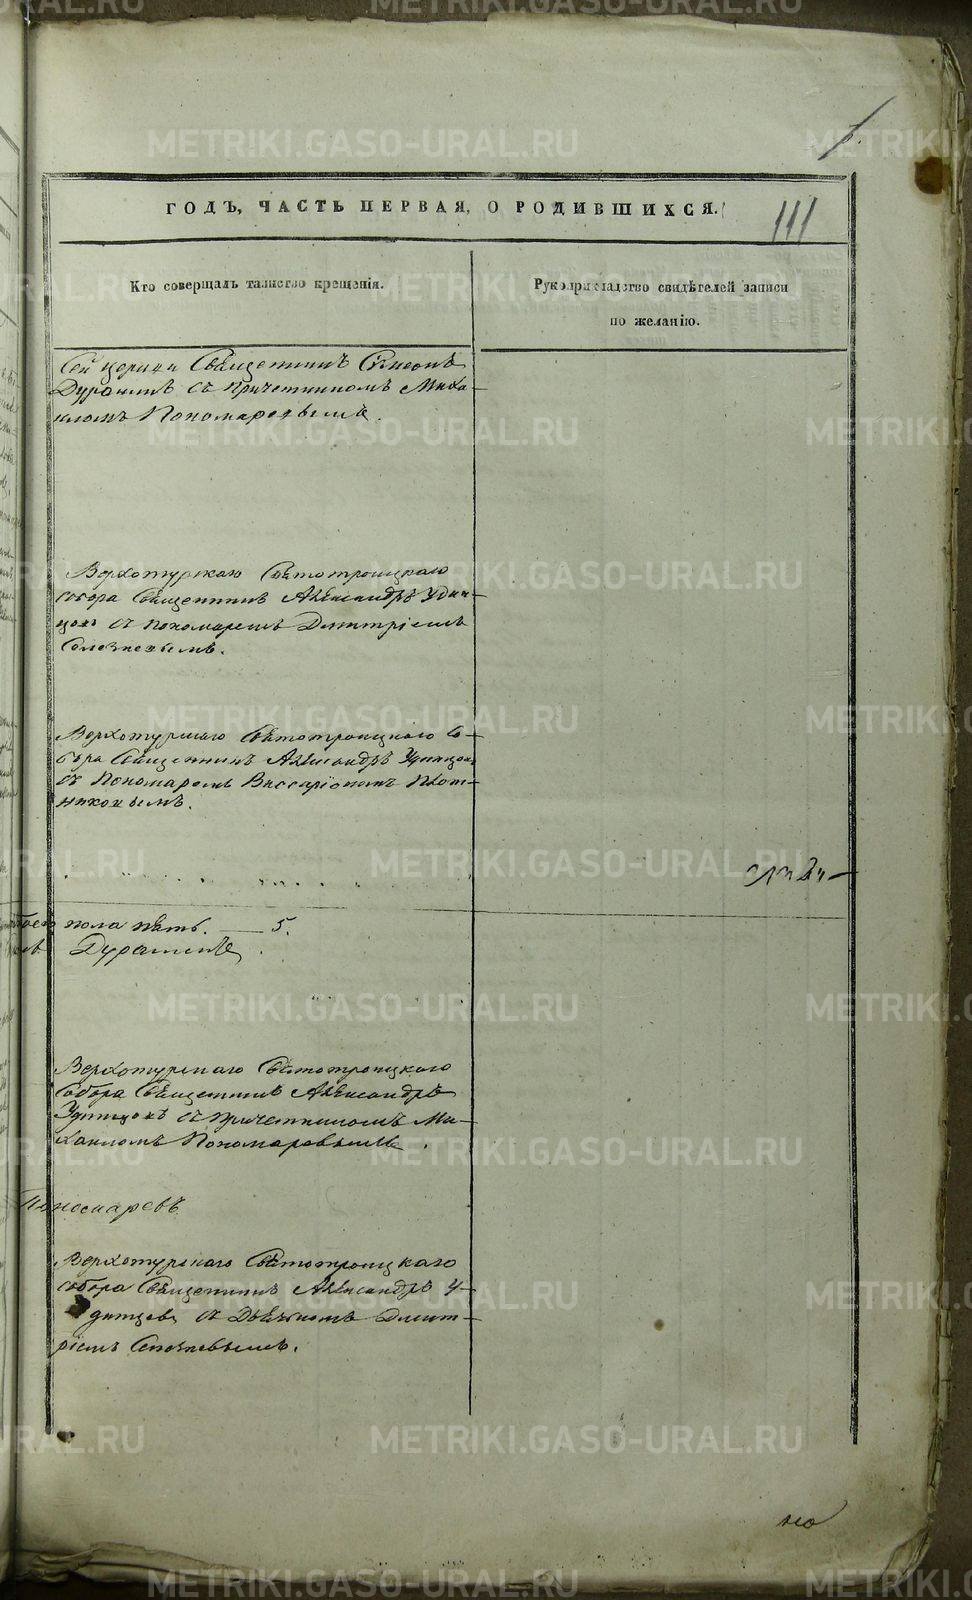 METRIKI.GASO-URAL.RU
111
ГОДЪ, ЧАСТЬ ПЕРВАЯ, О РОДИВШИХСЯ.
Кто совершалъ таинство крещенія.
Рукоприкладство свидѣтелей записи
по желанію.
Сей церкви Священникъ Симеонъ
Дурашинъ съ причетникомъ Миха-
иломъ Пономаревымъ.
Верхотурскаго Святотроицкаго
собора Священникъ Александръ Удин-
цовъ съ пономаремъ Димитріемъ
Селезневымъ.
Верхотурскаго Святотроицкаго Со-
бора Священникъ Александръ Удинцовъ
съ Пономаремъ Виссаріономъ Плот-
никовымъ.
пола пять. — 5.
Верхотурскаго Святотроицкаго
собора Священникъ Александръ
Удинцовъ съ причетникомъ Ми-
хаиломъ Пономаревымъ.
Пономаревъ
Верхотурскаго Святотроицкаго
собора Священникъ Александръ У-
динцовъ съ Дьячкомъ Димит-
ріемъ Селезневымъ.
но